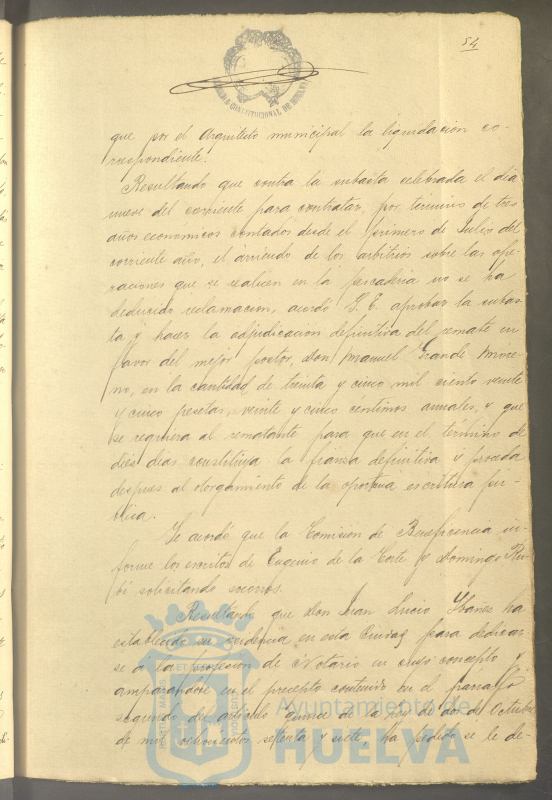 54
que por el Arquitecto municipal la liquidacion co-
rrespondiente.
Resultando que contra la subasta celebrada el dia
nueve del corriente para contratar, por termino de tres
años económicos contados desde el primero de Julio del
corriente año, el arriendo de los arbitrios sobre las ope-
raciones que se realicen en la pescadería no se ha
deducido reclamacion, acordó S. E. aprobar la subas-
ta y hacer la adjudicacion definitiva del remate en
favor del mejor postor, Don Manuel Grande More-
no, en la cantidad de treinta y cinco mil ciento veinte
y cinco pesetas, veinte y cinco céntimos anuales, y que
se requiera al rematante para que en el término de
diez dias constituya la fianza definitiva y proceda
despues al otorgamiento de la oportuna escritura pú-
blica.
Se acordó que la Comision de Beneficencia in-
forme los escritos de Eugenio de la Corte y Domingo Ru-
bí solicitando socorros.
Resultando que Don Juan Lucio Ybañez ha
establecido su residencia en esta Ciudad para dedicar-
se a la profesion de Notario en cuyo concepto y
amparandose en el precepto contenido en el parrafo
segundo del articulo quince de la ley de dos de Octubre
de mil ochocientos setenta y siete, ha pedido se le de-
Ayuntamiento de
HUELVA